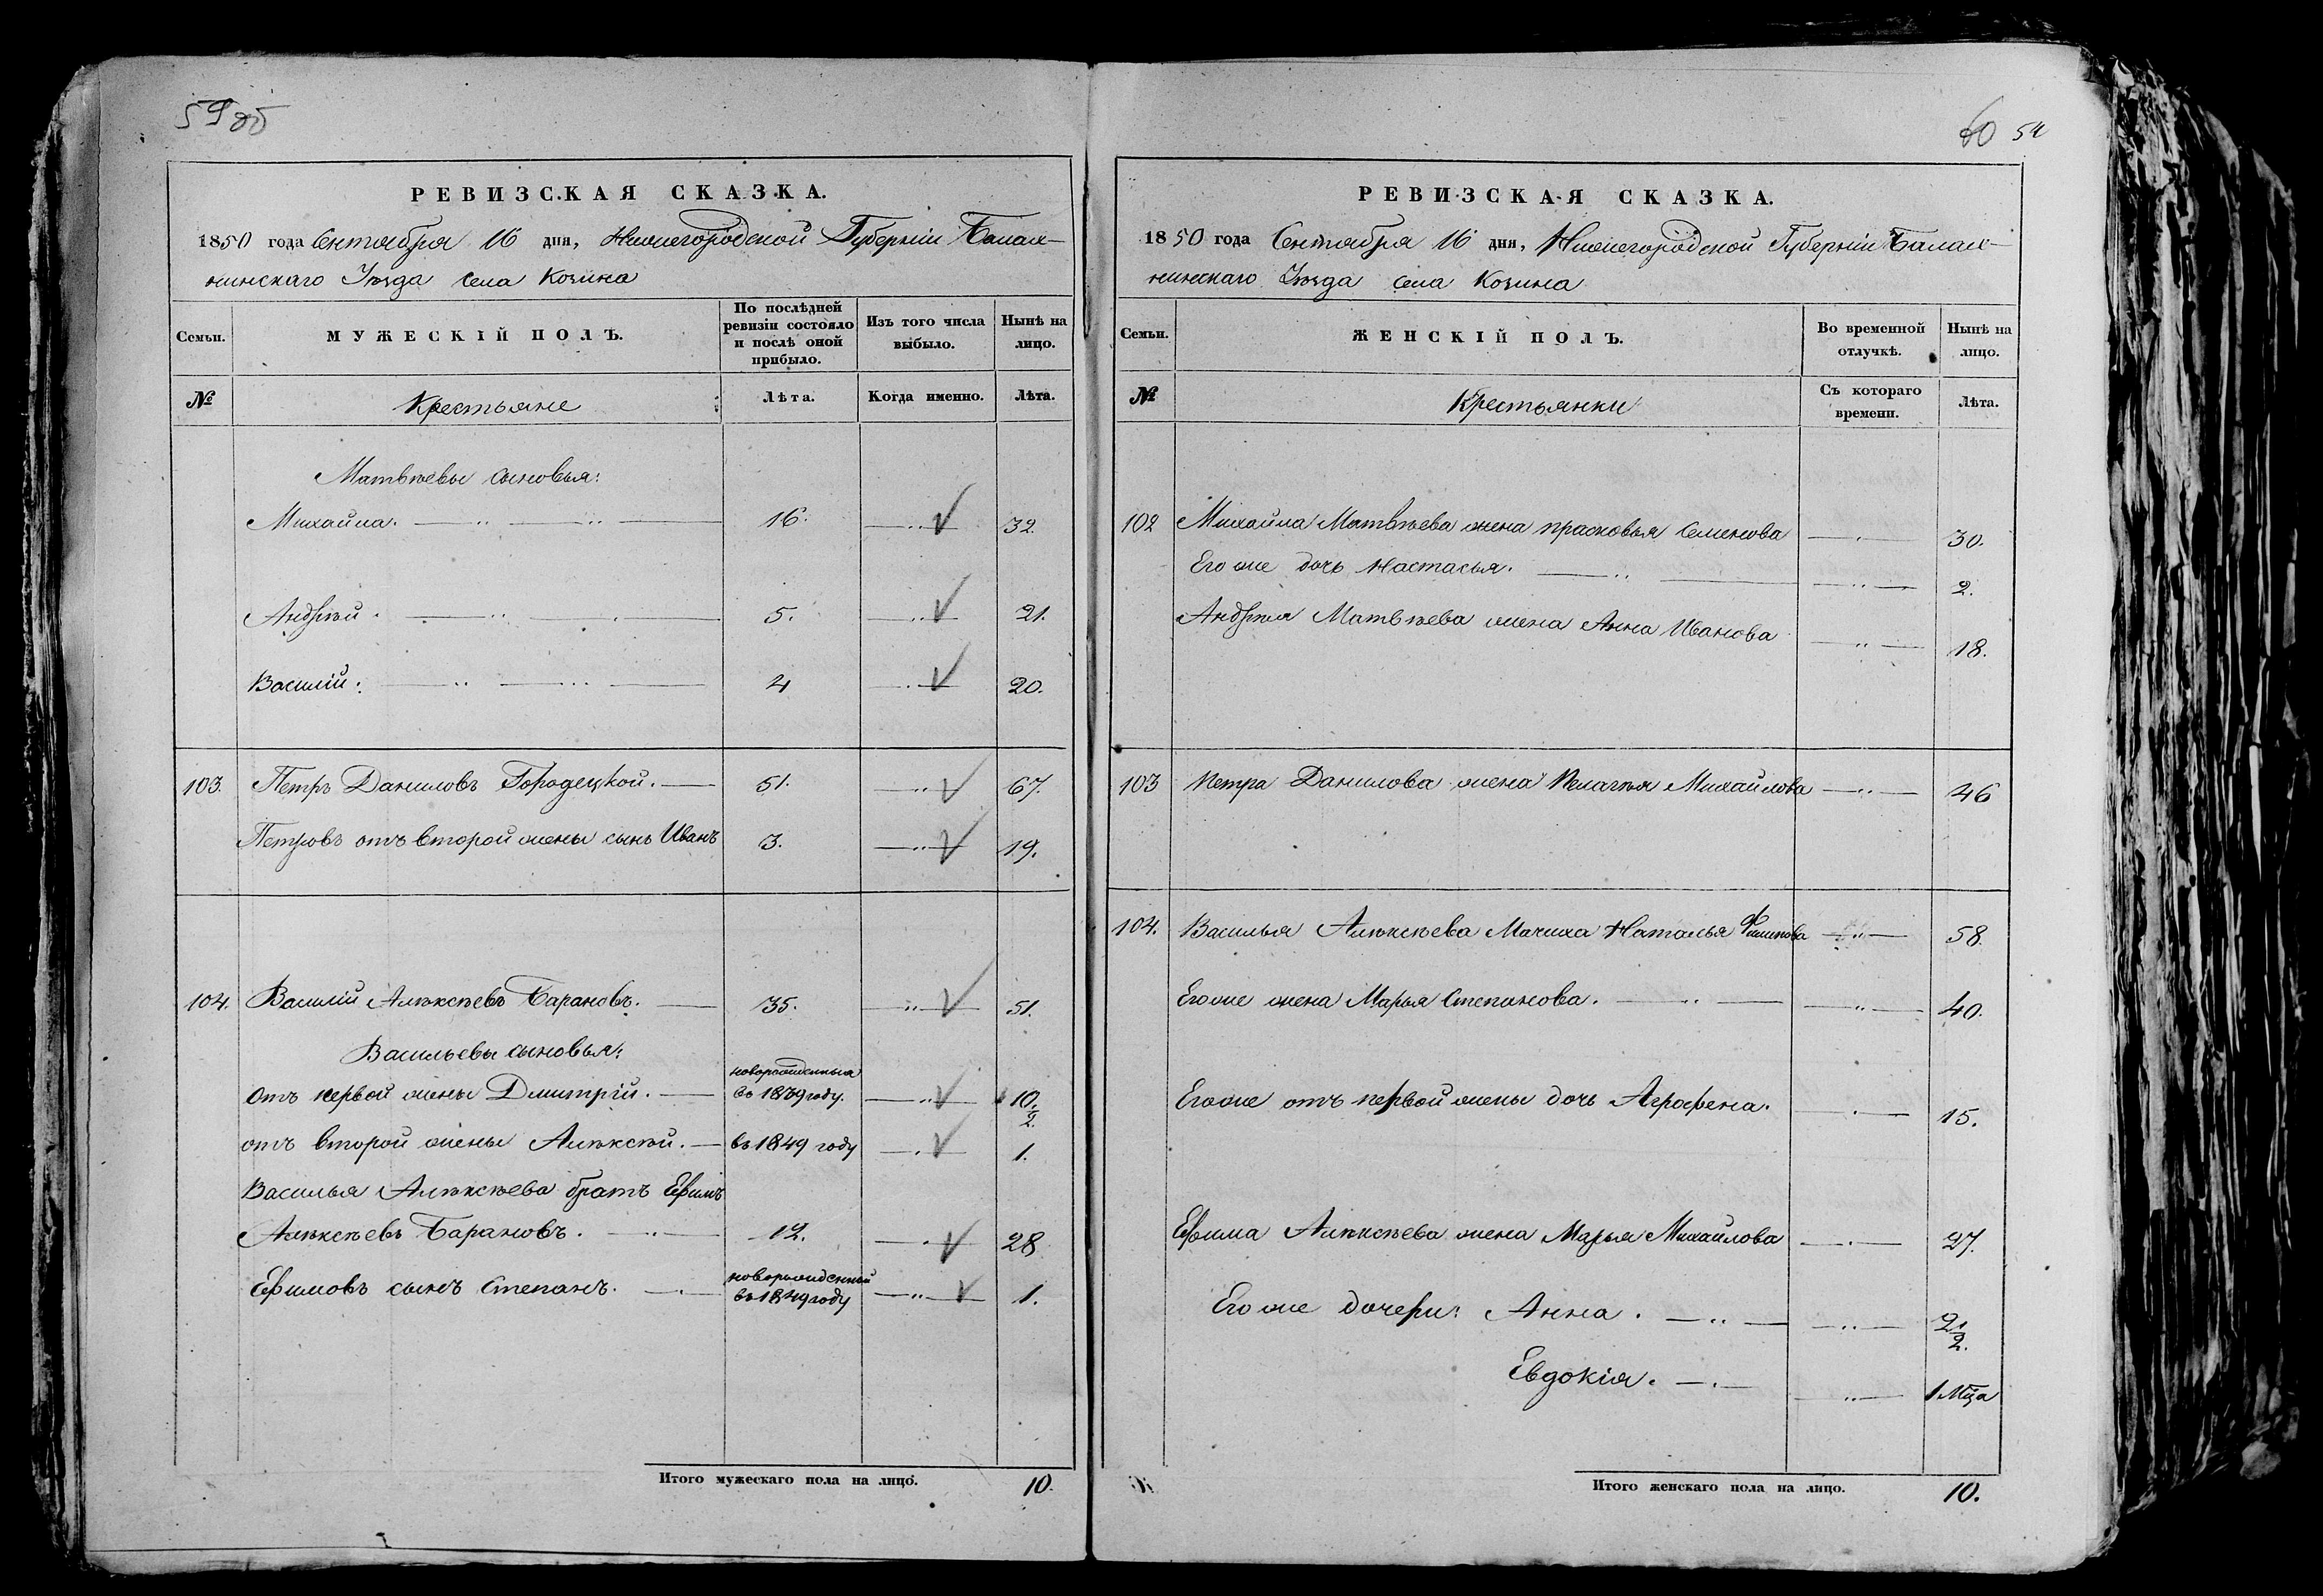 59 об
РЕВИЗСКАЯ СКАЗКА.
1850 года Сентября 16 дня, Нижегородской Губерніи Балах-
нинскаго Уѣзда села Козина
Семьи.
МУЖЕСКІЙ ПОЛЪ.
По послѣдней ревизіи состояло и послѣ оной прибыло.
Изъ того числа выбыло.
Нынѣ на лицо.
№ Крестьяне Лѣта. Когда именно. Лѣта.
Матвѣевы сыновья:
Михайла. 16. 32.
Андрѣй. 5. 21.
Василій. 4 20.
103. Петръ Даниловъ Городецкой. 51. 67.
Петровъ отъ второй жены сынъ Иванъ 3. 19.
104. Василій Алѣксѣевъ Барановъ. 35. 51.
Васильевы сыновья:
новорожденныя
отъ первой жены Дмитрій. въ 1839 году. 10 1/2.
отъ второй жены Алѣксѣй. въ 1849 году 1.
Василья Алѣксѣева братъ Ефимъ
Алѣксѣевъ Барановъ. 12. 28
новорожденный
Ефимовъ сынъ Степанъ. въ 1849 году 1.
Итого мужескаго пола на лицо. 10.
60 54
РЕВИЗСКАЯ СКАЗКА.
1850 года Сентября 16 дня, Нижегородской Губерніи Балах-
нинскаго Уѣзда села Козина
Семьи.
ЖЕНСКІЙ ПОЛЪ.
Во временной отлучкѣ.
Нынѣ на лицо.
№ Крестьянки Съ котораго времени. Лѣта.
102 Михайла Матвѣева жена Прасковья Семенова 30.
Его же дочь Настасья. 2.
Андрѣя Матвѣева жена Анна Иванова 18.
103 Петра Данилова жена Пелагѣя Михайлова 46
104. Василья Алѣксѣева Мачиха Наталья Филипова 58.
Его же жена Марья Степанова. 40.
Его же отъ первой жены дочь Аграфена. 15.
Ефима Алѣксѣева жена Марья Михайлова 27.
Его же дочери: Анна. 2 1/2.
Евдокія. 1 Мца
Итого женскаго пола на лицо. 10.